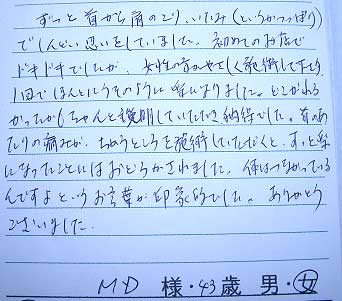 ずっと首から肩のこり、いたみ(というかつっぱり)
でしんどい思いをしていました。初めてのお店で
ドキドキでしたが、女性の方がやさしく施術して下さり
1回でほんとにうそのように楽になりました。どこがわる
かったかもちゃんと説明していただき納得でした。首のあ
たりの痛みが、ちがうところを施術していただくと、すっと楽
になったことにはおどろかされました。体はつながっている
んですよというお言葉が印象的でした。ありがとう
ございました。
MD 様・43歳 男・女